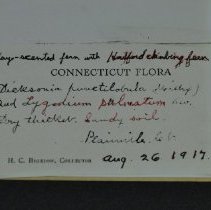 Hay-scented fern with Hartford climbing fern
CONNECTICUT FLORA
Dicksonia punctilobula (Michx.)
and Lygodium palmatum Sw.
Dry thicket. Sandy soil.
Plainville Ct
H. C. BIGELOW, COLLECTOR Aug. 26 1917.